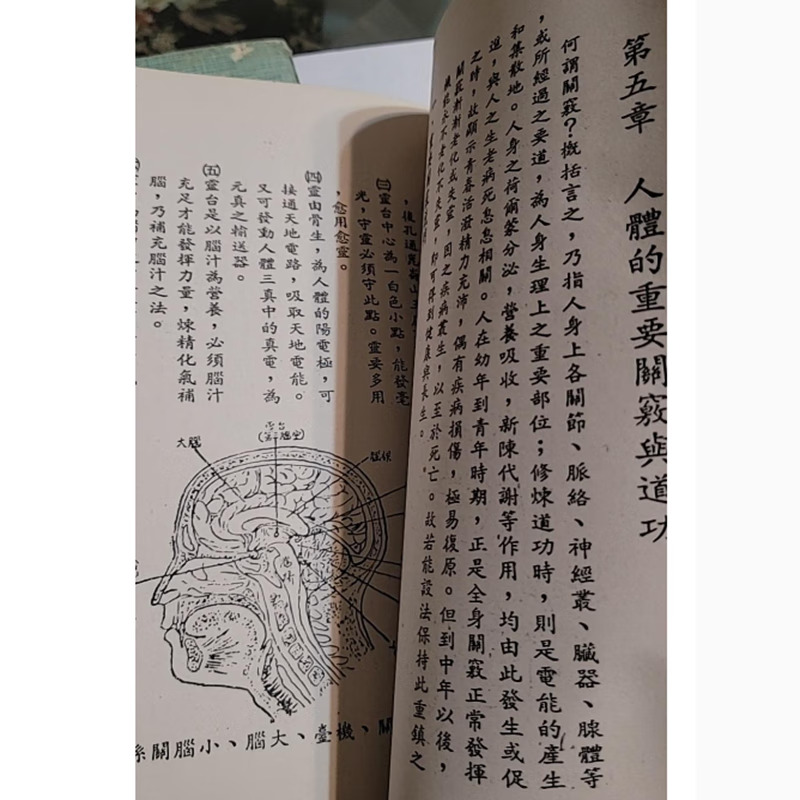 第五章　人體的重要關竅與道功
何謂關竅？概括言之，乃指人身上各關節、脈絡、神經叢、臟器、腺體等
，或所經過之要道，為人身生理上之重要部位；修煉道功時，則是電能的產生
和集散地。人身之荷爾蒙分泌，營養吸收，新陳代謝等作用，均由此發生或促
進，與人之生老病死息息相關。人在幼年到青年時期，正是全身關竅正常發揮
之時，故顯示青春活潑精力充沛，偶有疾病損傷，極易復原。但到中年以後，
關竅漸漸老化或失靈，因之疾病叢生，以至於死亡。故若能設法保持此重鎮之
永不老化不失靈，即可得到健康與長生。
，後孔通
㈢靈台中心為一白色小點，能發毫
光，守靈必須守此點。靈妥多用
，愈用愈靈。
㈣靈由骨生，為人體的陽電極，可
接通天地電路，吸取天地電能。
又可發動人體三真中的真電，為
元真之輸送器。
㈤靈台是以腦汁為營養，必須腦汁
充足才能發揮力量，煉精化氣補
腦，乃補充腦汁之法。
大腦
靈台
關、機臺、大腦、小腦關係